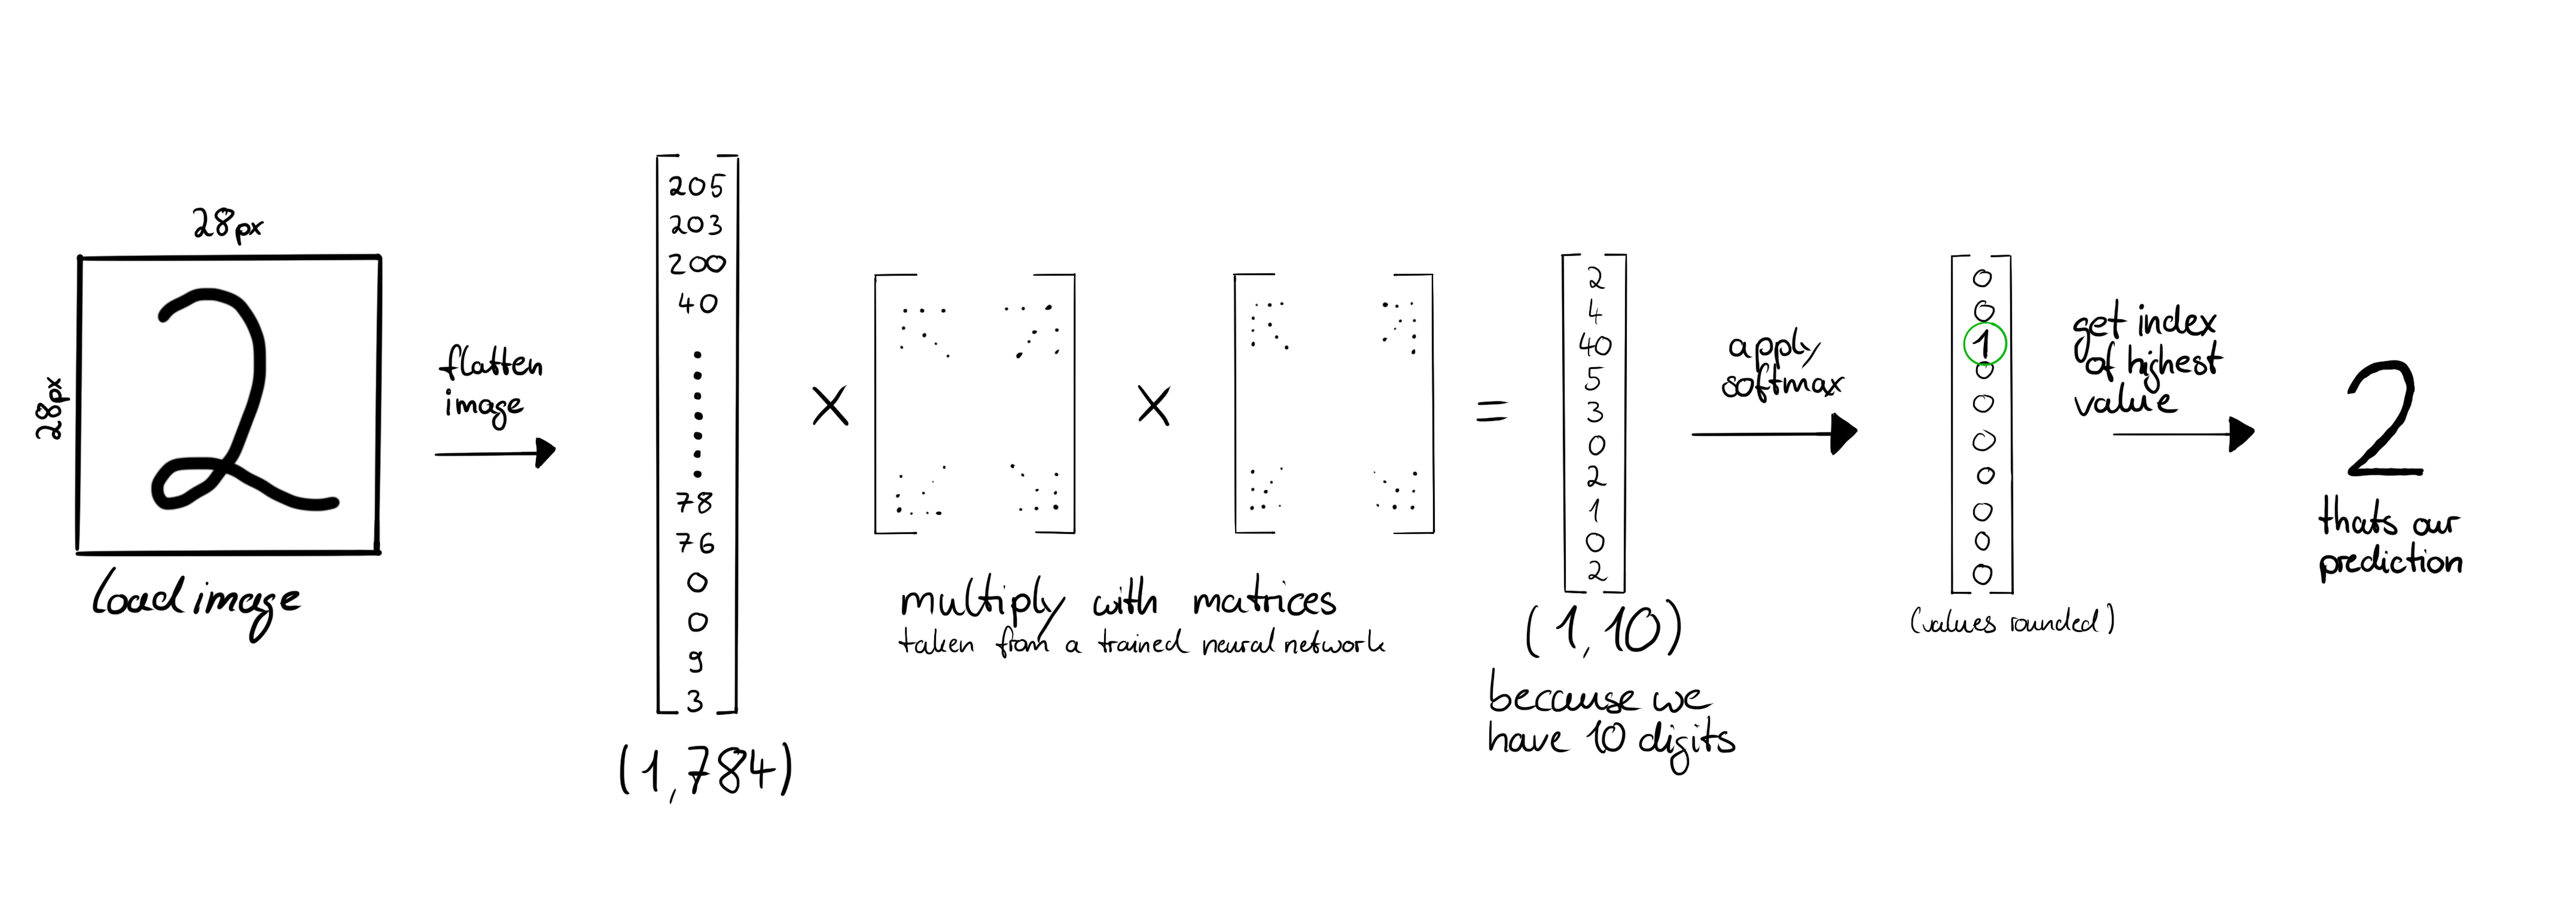 28px
28px
2
Load image
flatten
image
205
203
200
40
78
76
0
0
9
3
(1,784)
×
×
multiply with matrices
taken from a trained neural network
=
2
4
40
5
3
0
2
1
0
2
(1,10)
because we
have 10 digits
apply
softmax
0
0
1
0
0
0
0
0
0
0
(values rounded)
get index
of highest
value
2
thats our
prediction